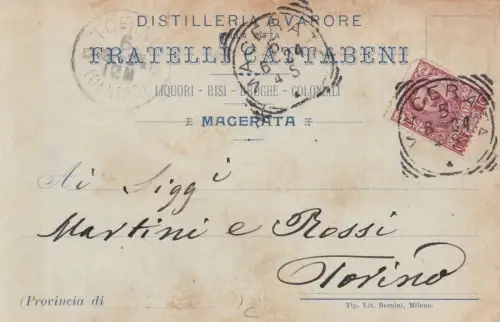 DISTILLERIA A VAPORE
DITTA
FRATELLI CATTABENI
LIQUORI - RISI - DROGHE - COLONIALI
MACERATA
MACERATA
MACERATA
Ai Sigg.i
Martini e Rossi
Torino
(Provincia di )
Tip. Lit. Bernini, Milano.